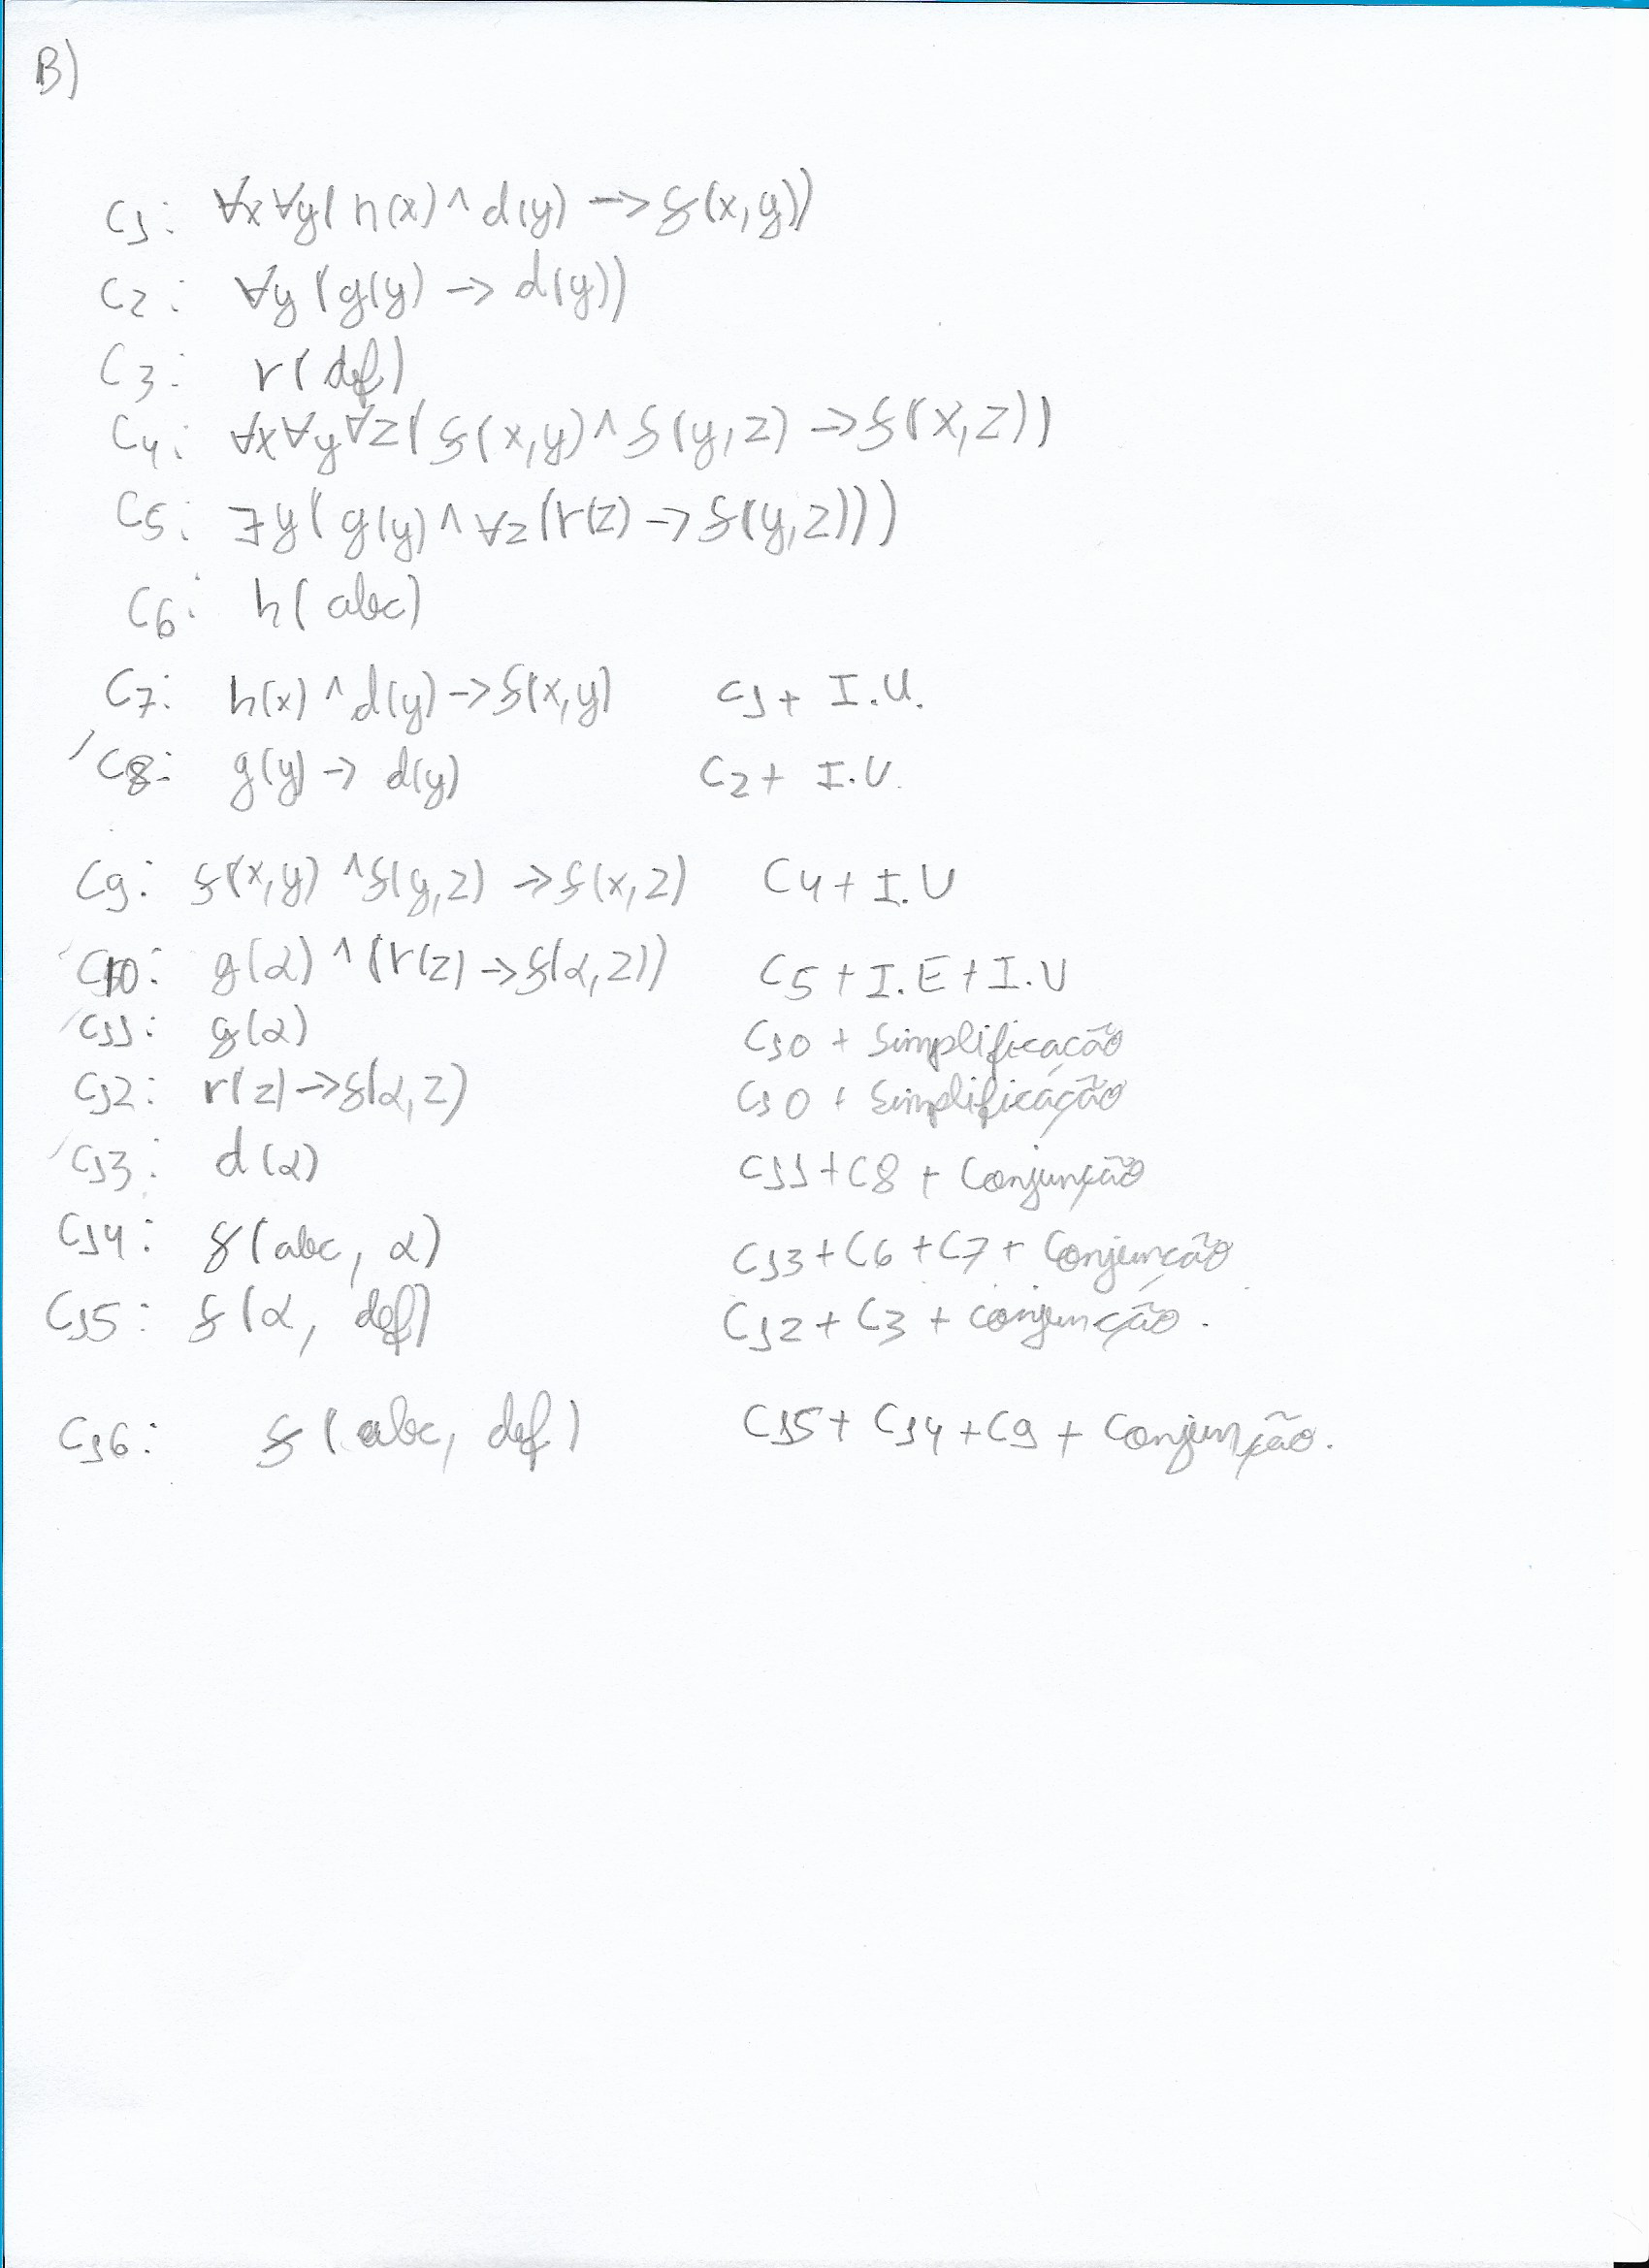 B)
C1: ∀x∀y(h(x)^d(y) -> f(x,y))
C2: ∀y(g(y) -> d(y))
C3: r(def)
C4: ∀x∀y∀z(f(x,y)^f(y,z) -> f(x,z))
C5: ∃y(g(y)^∀z(r(z) -> f(y,z)))
C6: h(abc)
C7: h(x)^d(y) -> f(x,y) C1 + I.U.
C8: g(y) -> d(y) C2 + I.U.
C9: f(x,y)^f(y,z) -> f(x,z) C4 + I.U
C10: g(α)^(r(z) -> f(α,z)) C5 + I.E + I.U
C11: g(α) C10 + Simplificação
C12: r(z) -> f(α,z) C10 + Simplificação
C13: d(α) C11 + C8 + Conjunção
C14: f(abc, α) C13 + C6 + C7 + Conjunção
C15: f(α, def) C12 + C3 + conjunção.
C16: f(abc, def) C15 + C14 + C9 + Conjunção.